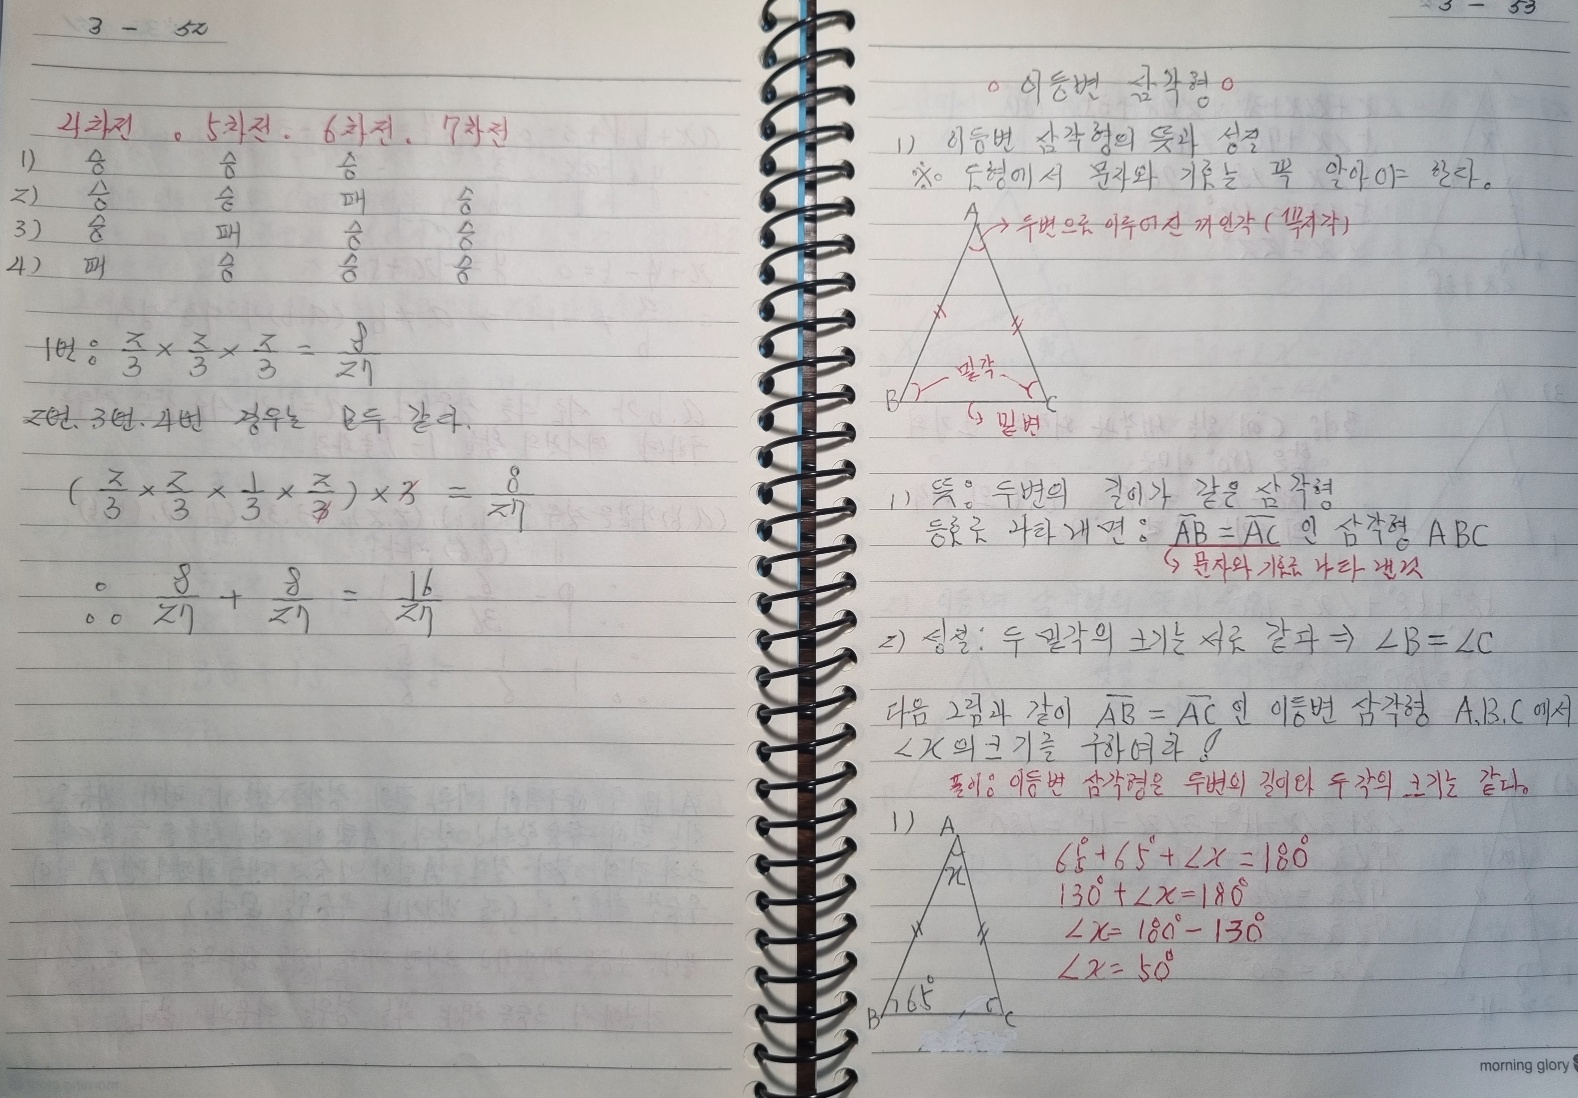 3 - 52
4차전 . 5차전 . 6차전 . 7차전
1) 승 승 승
2) 승 승 패 승
3) 승 패 승 승
4) 패 승 승 승
1번: 2/3 × 2/3 × 2/3 = 8/27
2번. 3번. 4번 경우는 모두 같다.
( 2/3 × 2/3 × 1/3 × 2/3 ) × 3 = 8/27
∴ 8/27 + 8/27 = 16/27
3 - 53
이등변 삼각형
1) 이등변 삼각형의 뜻과 성질
※ 도형에서 문자와 기호는 꼭 알아야 한다.
A
→ 두변으로 이루어진 끼인각 (꼭지각)
밑각
B C
밑변
1) 뜻: 두변의 길이가 같은 삼각형
등호로 나타내면: AB = AC 인 삼각형 ABC
문자와 기호로 나타낸것
2) 성질: 두 밑각의 크기는 서로 같다 ⇒ ∠B = ∠C
다음 그림과 같이 AB = AC 인 이등변 삼각형 A.B.C 에서
∠x의 크기를 구하여라!
풀이: 이등변 삼각형은 두변의 길이와 두 각의 크기는 같다.
1) A
x
65° + 65° + ∠x = 180°
130° + ∠x = 180°
∠x = 180° - 130°
∠x = 50°
B 65° C
morning glory